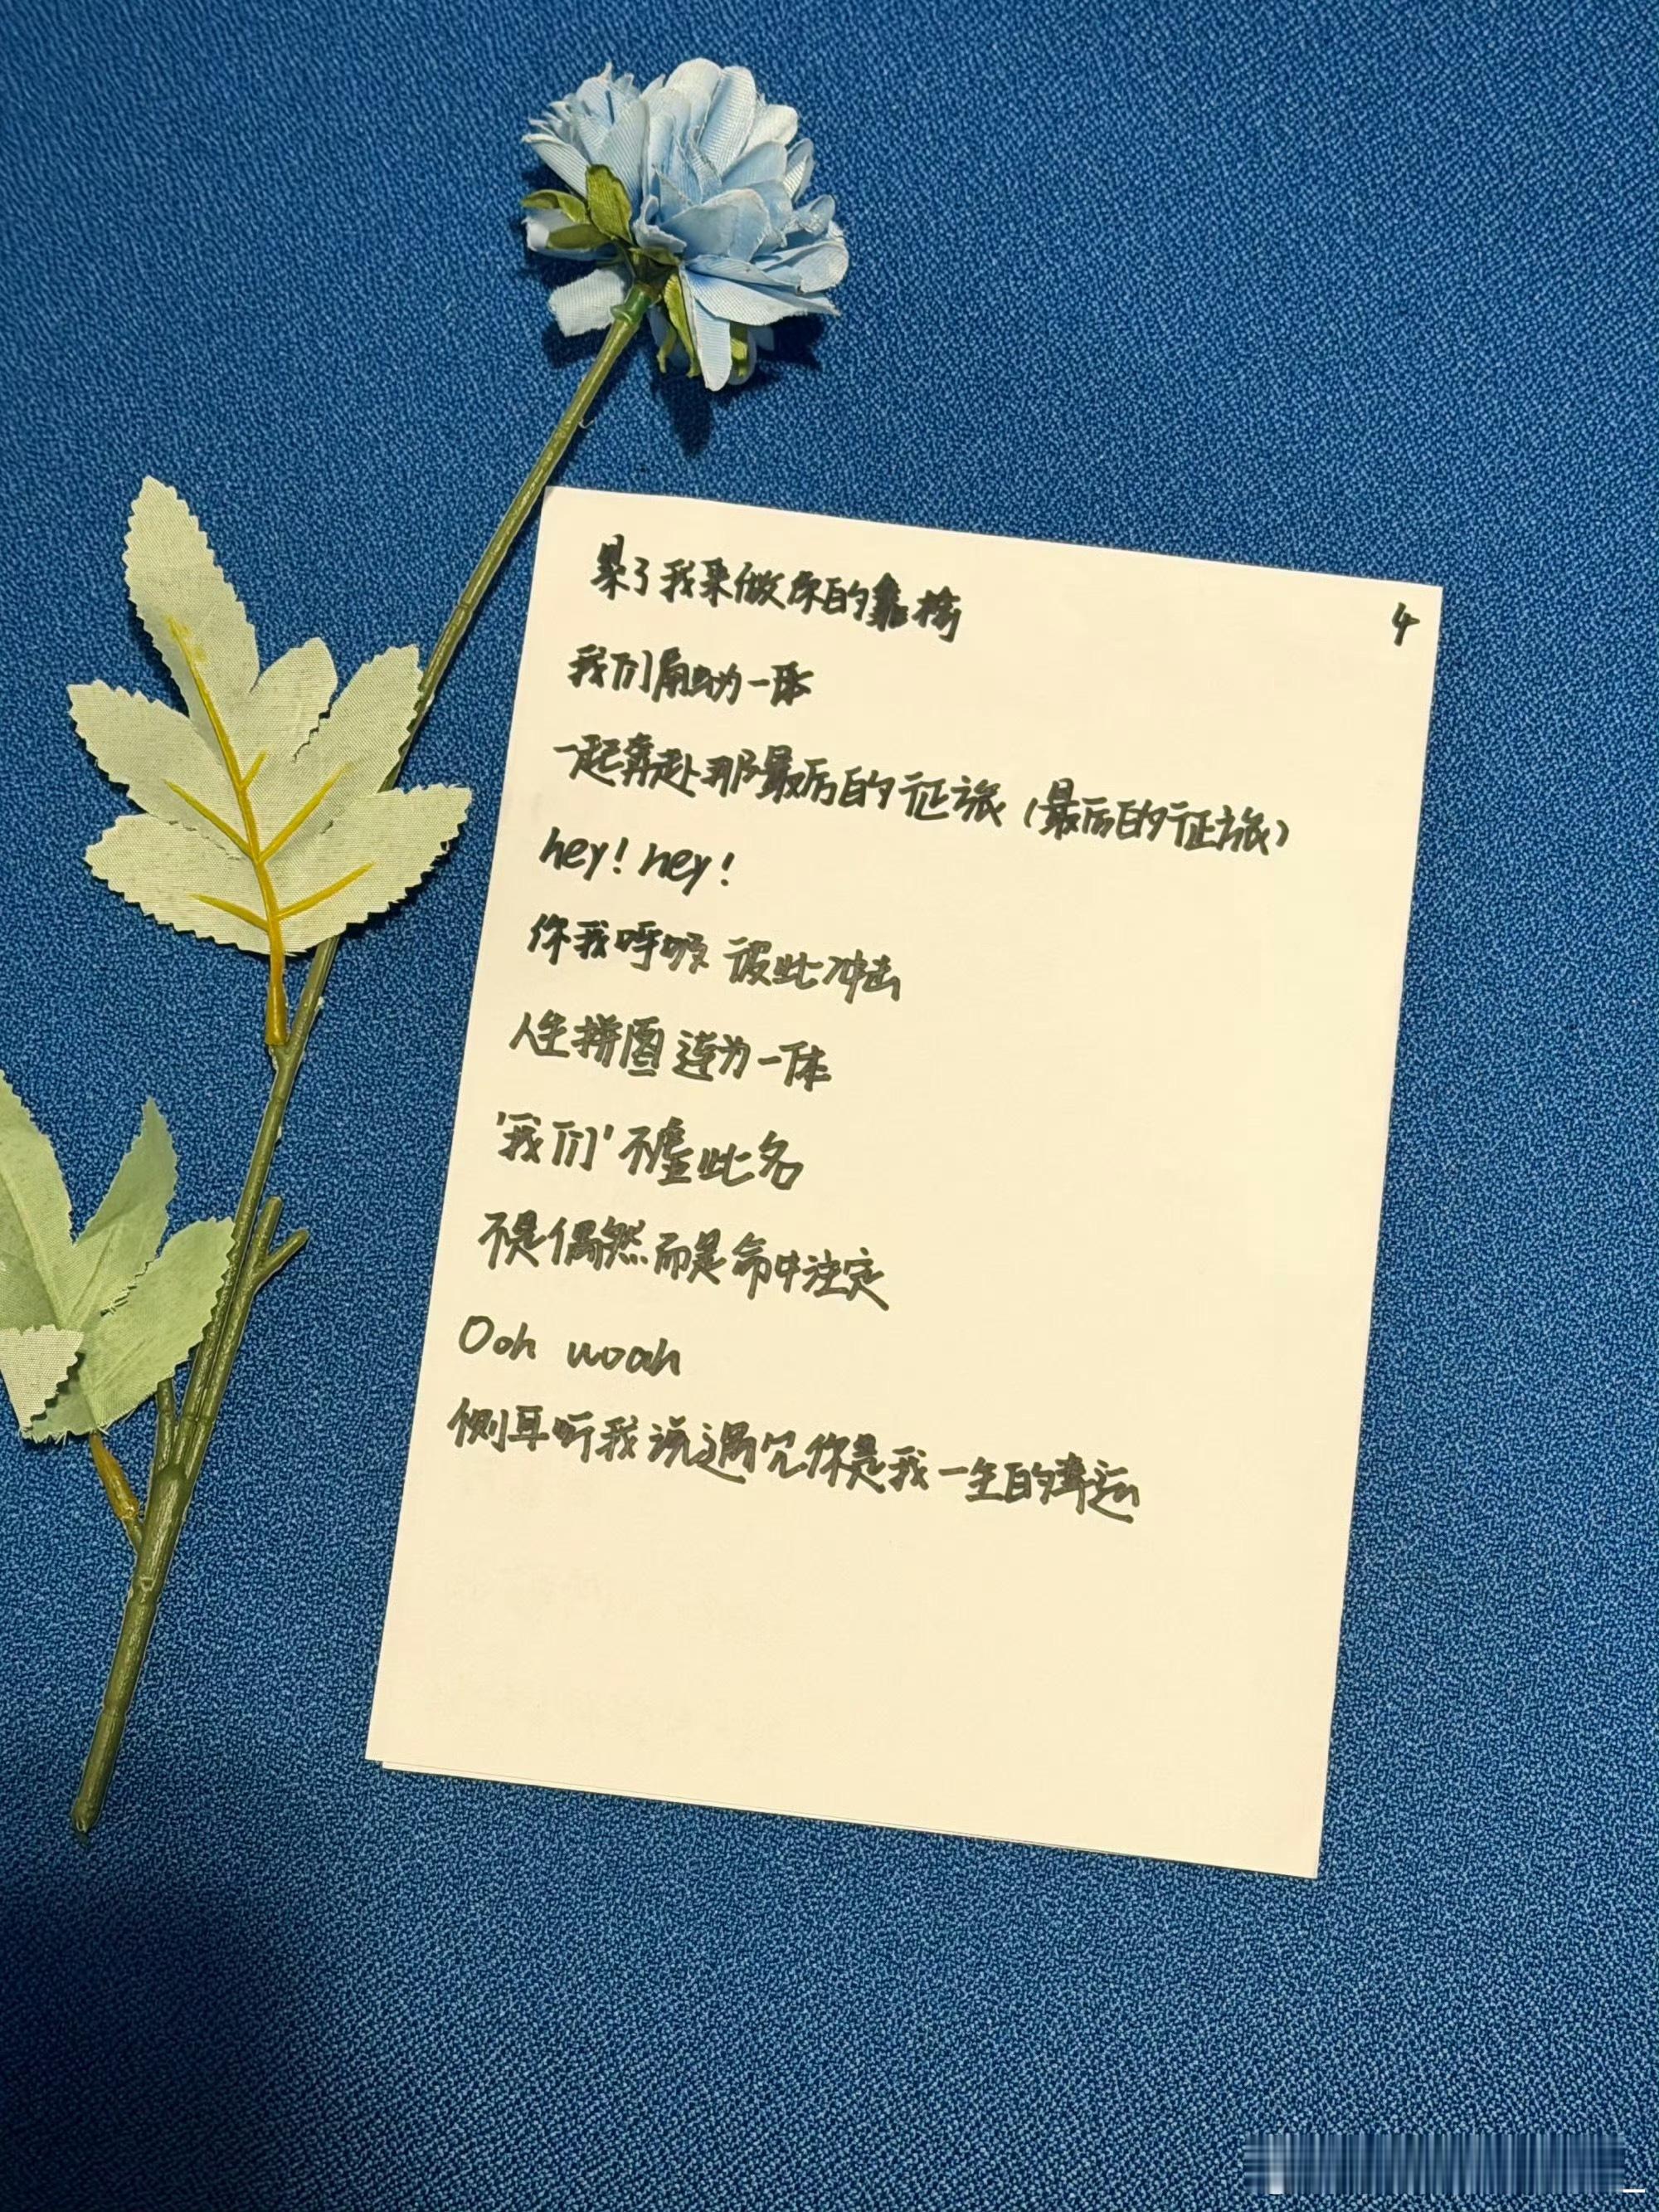 4
累了我来做你的靠椅
我们角力为一体
一起奔赴那最后的征旅(最后的征旅)
hey! hey!
你我呼吸 彼此冲击
人生拼图 连为一体
'我们'不虚此名
不是偶然而是命中注定
Ooh woah
侧耳听我说遇见你是我一生的幸运